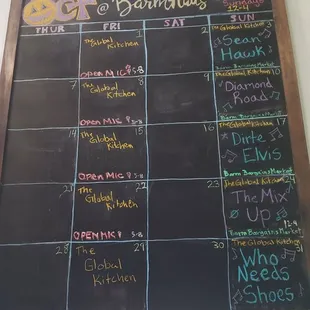 OCT @ BarnHaus
12-4
THUR FRI SAT SUN
1 2 3
The Global Kitchen
OPEN MIC 5-8
The Global Kitchen
Sean Hawk
Barn Bargains Market
7 8 9 10
The Global Kitchen
OPEN MIC 5-8
The Global Kitchen
Diamond Road
Barn Bargains Market
14 15 16 17
The Global Kitchen
OPEN MIC 5-8
The Global Kitchen
Dirte Elvis
Barn Bargains Market
21 22 23 24
The Global Kitchen
OPEN MIC 5-8
The Global Kitchen
The Mix Up
12-8
Barn Bargains Market
28 29 30 31
The Global Kitchen
The Global Kitchen
Who Needs Shoes